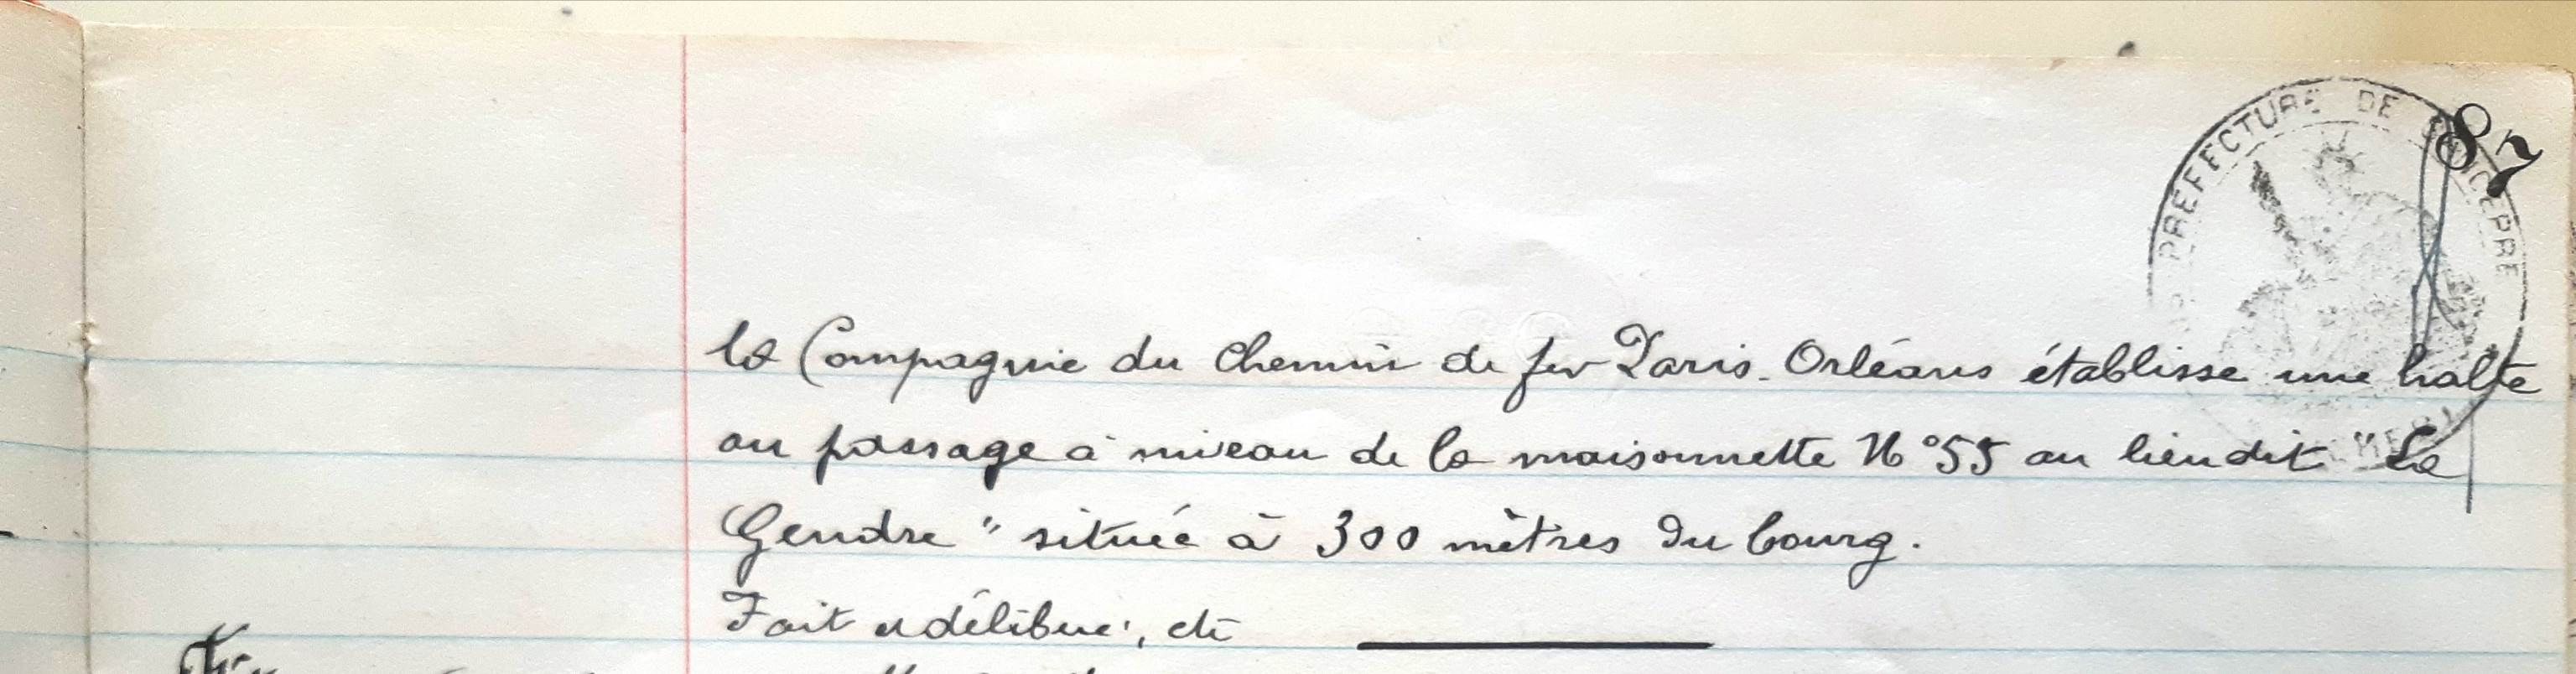 87
PREFECTURE DE
la Compagnie du Chemin de fer Paris-Orléans établisse une halte
au passage à niveau de la maisonnette N°55 au lieu dit "La
Gendre" située à 300 mètres du bourg.
Fait et délibéré, etc